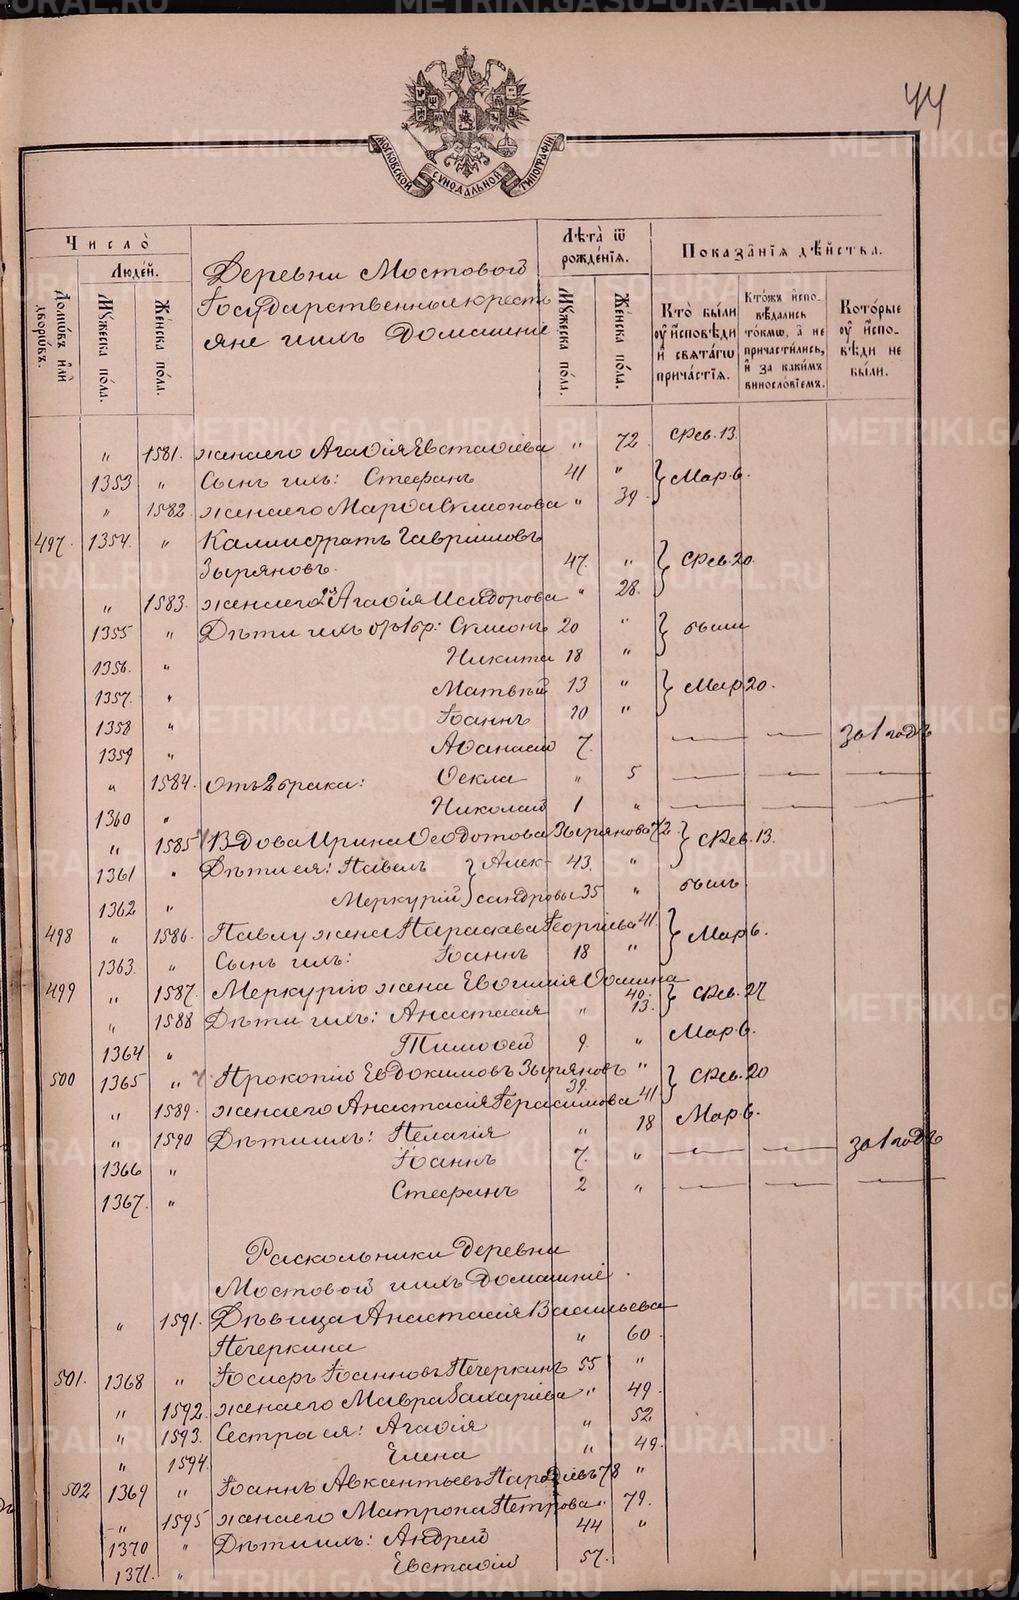 44
МОСКОВСКОЙ СѴНОДАЛЬНОЙ ТИПОГРАФІИ
Число̀
Людéй.
Домѡ́въ и҆лѝ дворѡ́въ.
Мꙋ́жеска по́ла.
Же́нска по́ла.
Деревни Мостовой
Государственные кресть
яне и ихъ домашніе
Лѣ́та ѿ рожде́нїѧ.
Мꙋ́жеска по́ла.
Же́нска по́ла.
Показа̑нїѧ дѣ́йства.
Кто̀ бы́ли ᲂу҆ и҆́споведи и҆ свѧта́гѡ прича́стїѧ.
Кто́жъ и҆спо-вѣ́дались то́кмѡ, а҆ не причасти́лись, и҆ за каки́мъ винослóвїемъ.
Кото́рые ᲂу҆ и҆спо-вѣди не бы́ли.
" 1581. жена его Агаѳія Евстаѳіева " 72. Фев. 13.
1353 " Сынъ ихъ: Стефанъ 41 " } Мар. 6.
" 1582. жена его Марѳа Симонова " 39.
497. 1354. " Каллистратъ Гавріиловъ
Зыряновъ. 47. " } Фев. 20.
" 1583. жена его 2я Агаѳія Исидорова " 28.
1355 " Дѣти ихъ отъ 1 бр: Симонъ 20 " } были
1356. " Никита 18 "
1357. " Матвѣй 13 " } Мар 20.
1358 " Іоаннъ 10 "
1359 " Аѳанасій 7. — — за 1 годъ
" 1584. отъ 2 брака: Ѳекла " 5 — — —
1360 " Николай 1 " — — —
" 1585 Вдова Ирина Ѳеодотова Зырянова 72. } Фев. 13.
1361 " Дѣти ея: Павелъ } Алек- 43. "
1362 " Меркурій } сандровы 35 " былъ
498 " 1586. Павлу жена Параскева Георгіева 41. } Мар 6.
1363. " Сынъ ихъ: Іоаннъ 18 "
499 " 1587. Меркурію жена Евѳимія Ѳомина 40. } Фев. 27
" 1588 Дѣти ихъ: Анастасія " 13.
1364 " Тимоѳей 9. " Мар 6.
500 1365 " Прокопій Евдокимовъ Зыряновъ 39. " } Фев. 20
" 1589. жена его Анастасія Герасимова 41
" 1590 Дѣти ихъ: Пелагія " 18 Мар 6.
1366 " Іоаннъ 7. " — — за 1 годъ
1367. " Стефанъ 2 " — — —
Раскольники деревни
Мостовой и ихъ домашніе.
" 1591. Дѣвица Анастасія Васильева
Печеркина " 60.
501. 1368 " Іосифъ Іоанновъ Печеркинъ 55 "
" 1592. жена его Мавра Захаріева " 49.
" 1593. Сестры ея: Агаѳія " 52
" 1594. Елена " 49.
502 1369 " Іоаннъ Авксентьевъ 78 "
" 1595 жена его Матрона Петрова " 79.
1370 " Дѣти ихъ: Андрей 44 "
1371. " Евстаѳій 57.
METRIKI.GASO-URAL.RU